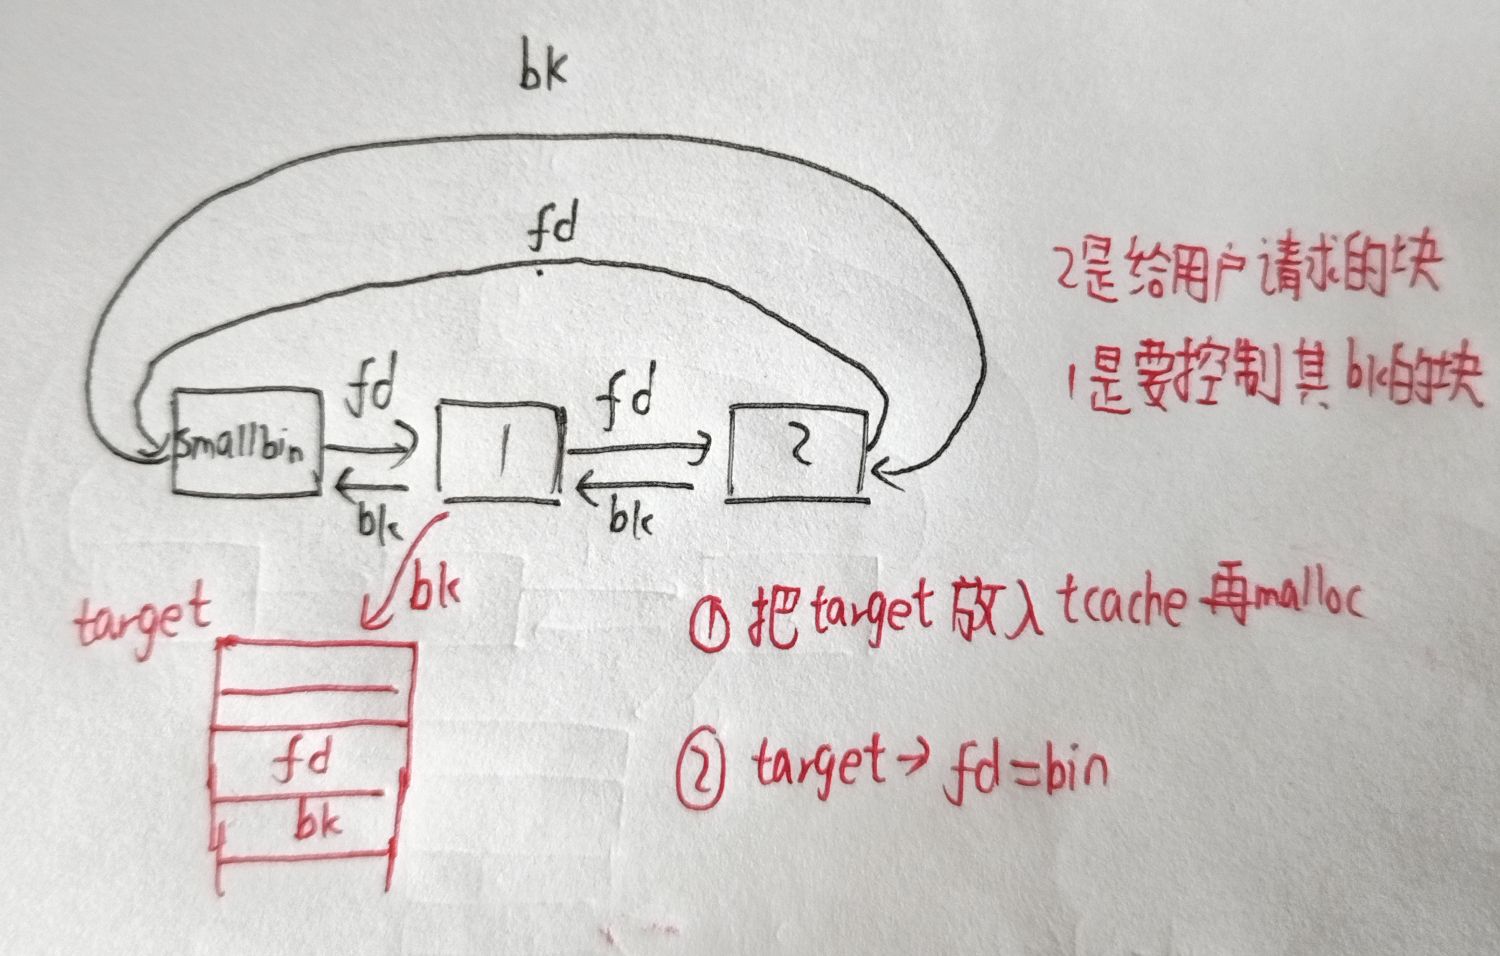 bk
fd
2是给用户请求的块
1是要控制其bk的块
fd
fd
smallbin
1
2
bk
bk
bk
target
①把target放入tcache再malloc
fd
②target→fd=bin
bk